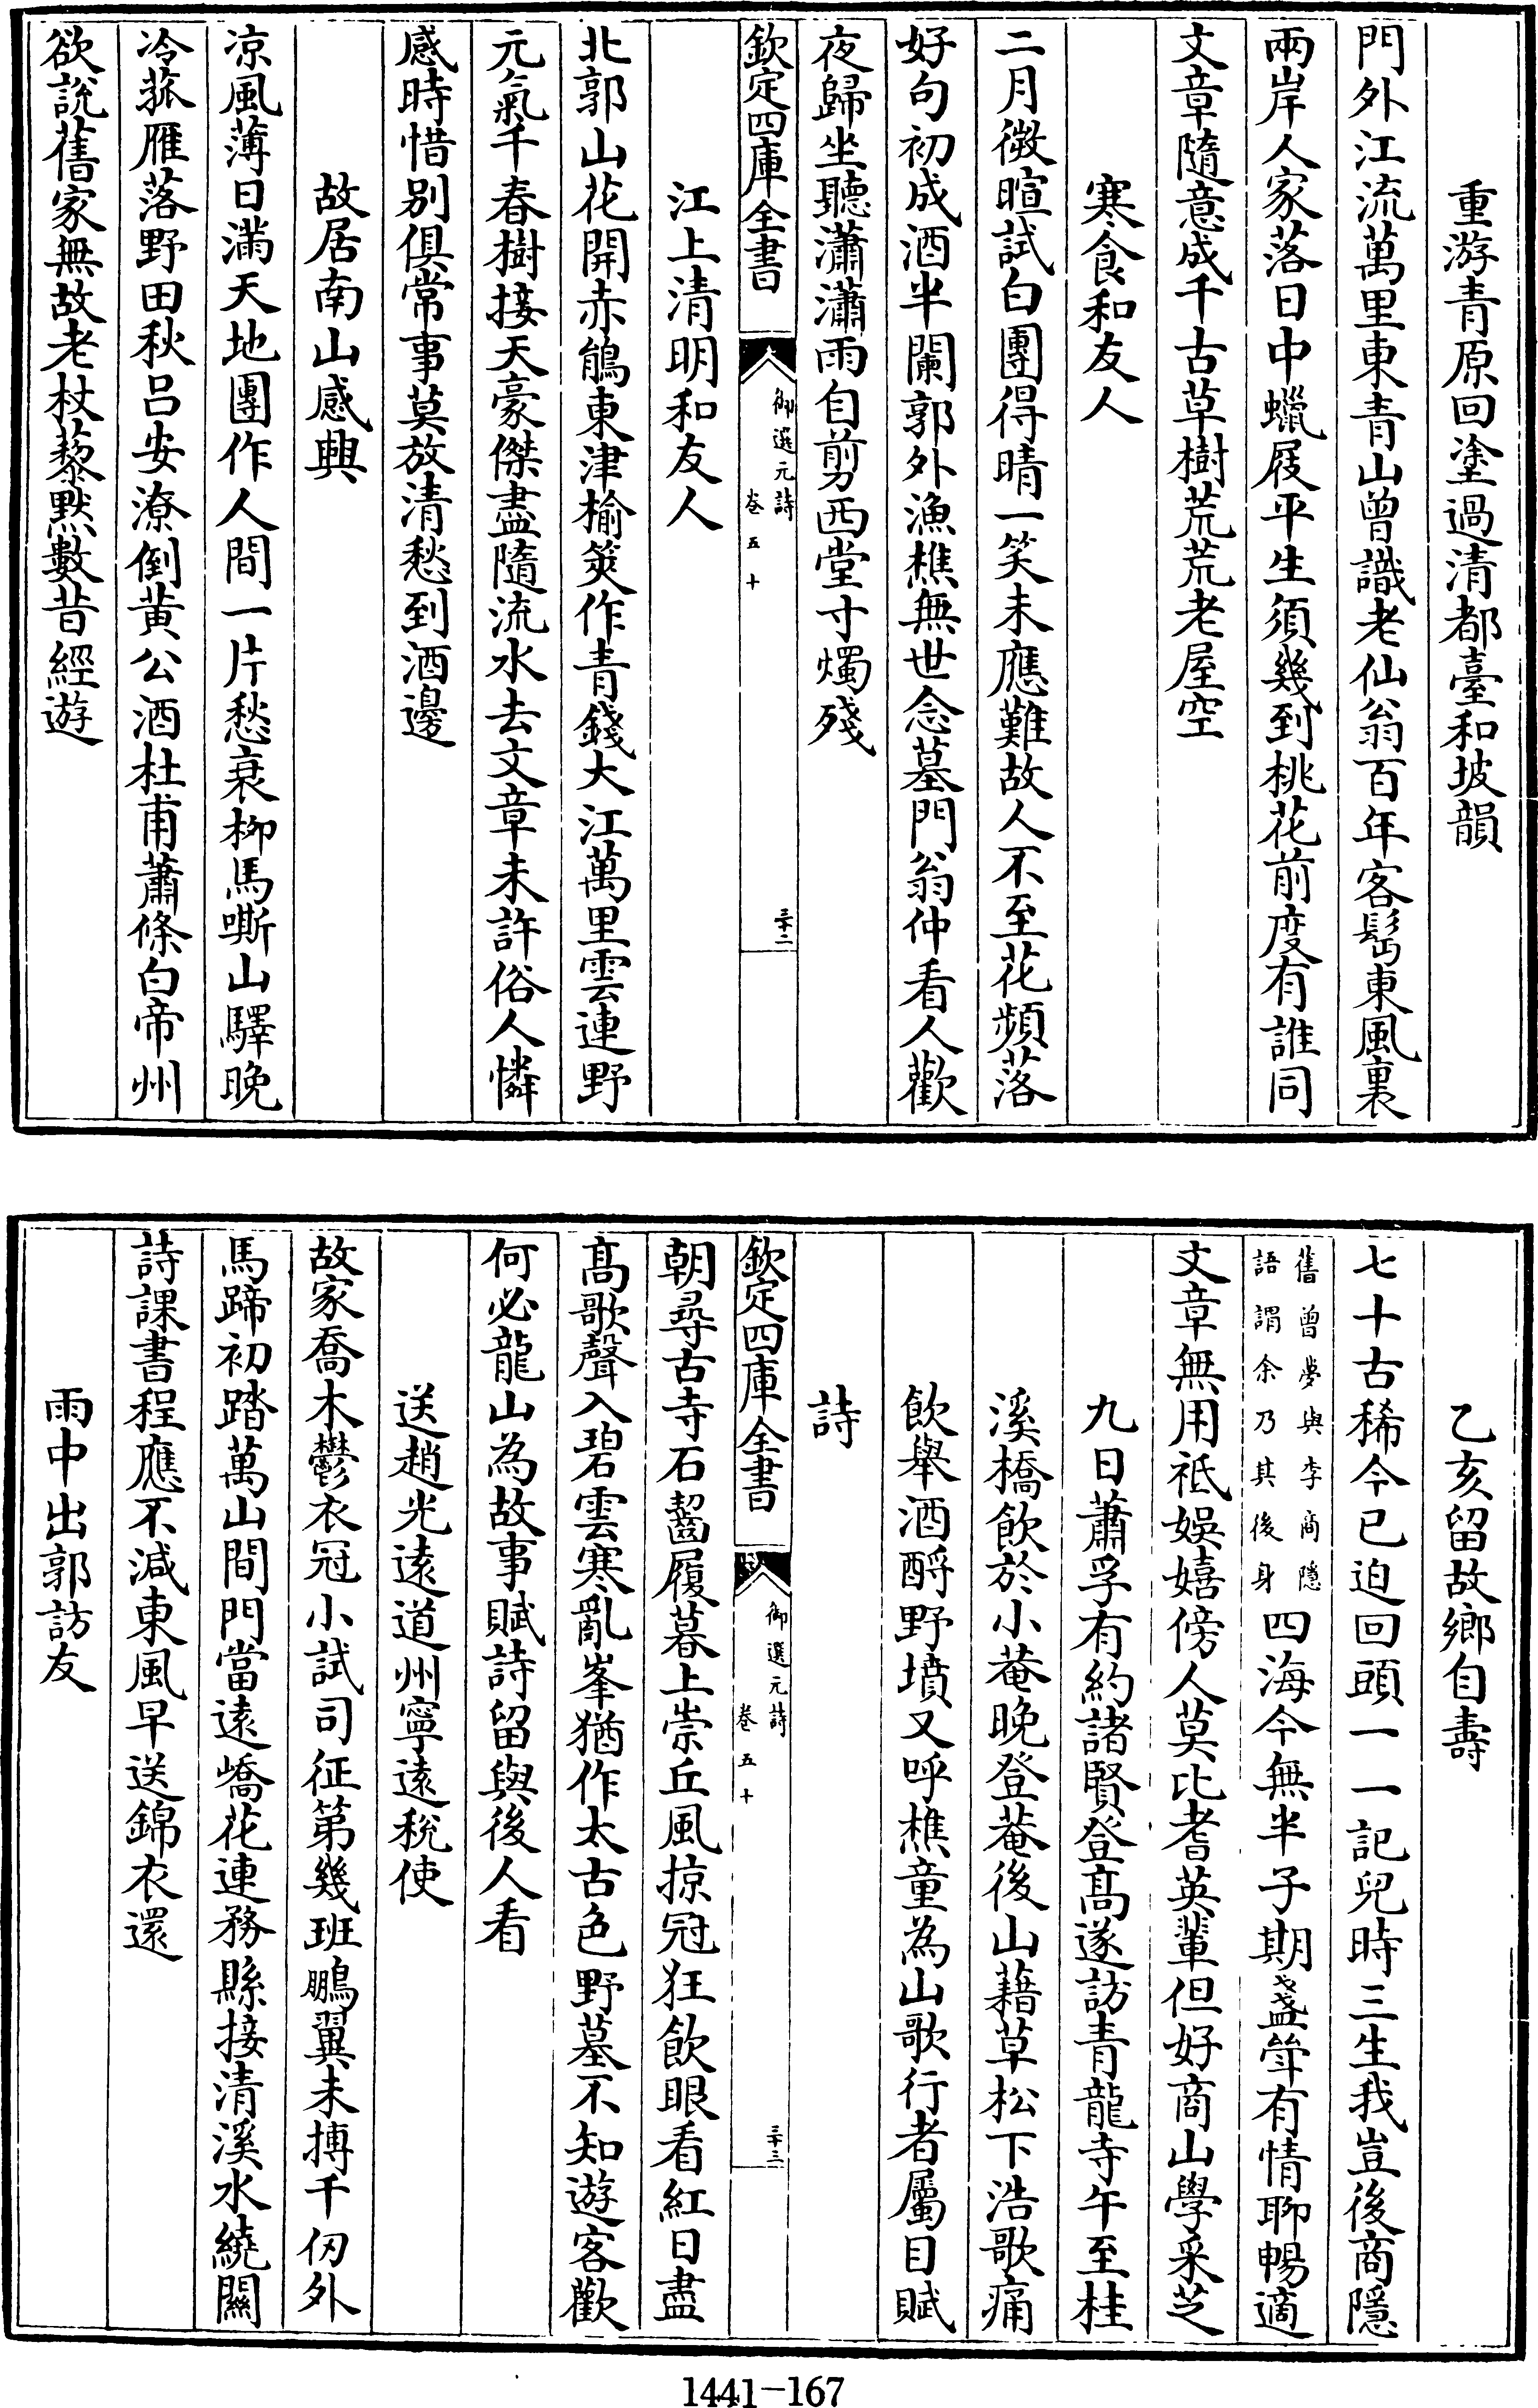 重游青原回塗過清都臺和坡韻
門外江流萬里東青山曾識老仙翁百年客髩東風裏
兩岸人家落日中蠟屐平生須幾到桃花前度有誰同
文章隨意成千古草樹荒荒老屋空
寒食和友人
二月微暄試白團得晴一笑未應難故人不至花頻落
好句初成酒半闌郭外漁樵無世念墓門翁仲看人歡
夜歸坐聽瀟瀟雨自剪西堂寸燭殘
欽定四庫全書
御選元詩
卷五十
三十二
江上清明和友人
北郭山花開赤鵃東津榆筴作青錢大江萬里雲連野
元氣千春樹接天豪傑盡隨流水去文章未許俗人憐
感時惜别俱常事莫放清愁到酒邊
故居南山感興
凉風薄日滿天地團作人間一片愁衰柳馬嘶山驛晚
冷菰雁落野田秋呂安潦倒黃公酒杜甫蕭條白帝州
欲說舊家無故老杖藜默數昔經遊
乙亥留故鄉自壽
七十古稀今已迫回頭一一記兒時三生我豈後商隱
舊曾夢與李商隱
語謂余乃其後身
四海今無半子期盞斝有情聊暢適
文章無用祗娛嬉傍人莫比耆英輩但好商山學采芝
九日蕭孚有約諸賢登髙遂訪青龍寺午至桂
溪橋飲於小菴晚登菴後山藉草松下浩歌痛
飲舉酒酹野墳又呼樵童為山歌行者屬目賦
詩
欽定四庫全書
御選元詩
卷五十
三十三
朝尋古寺石齧履暮上崇丘風掠冠狂飲眼看紅日盡
髙歌聲入碧雲寒亂峯猶作太古色野墓不知遊客歡
何必龍山為故事賦詩留與後人看
送趙光遠道州寧遠稅使
故家喬木鬱衣冠小試司征第幾班鵬翼未摶千仞外
馬蹄初踏萬山間門當遠嶠花連務縣接清溪水繞關
詩課書程應不減東風早送錦衣還
雨中出郭訪友
1441—167